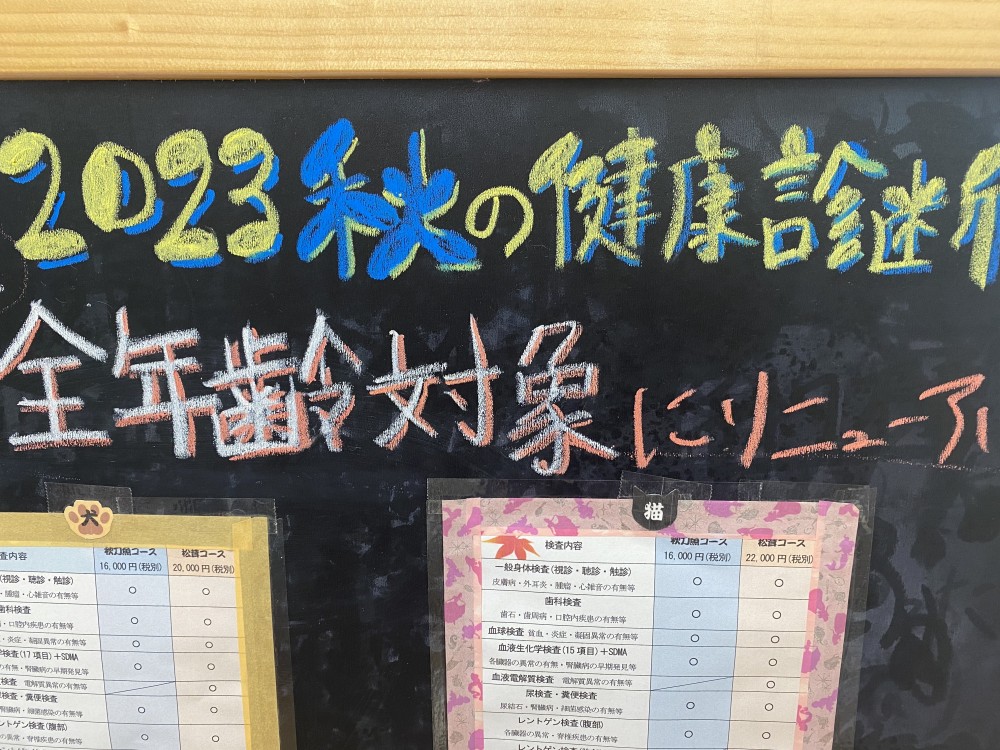 2023秋の健康診断
全年齢対象にリニューアル
犬
査内容 秋刀魚コース 松茸コース
16,000円(税別) 20,000円(税別)
(視診・聴診・触診) ○ ○
・腫瘤・心雑音の有無等
歯科検査 ○ ○
病・口腔内疾患の有無等
・炎症・凝固異常の有無等 ○ ○
学検査(17項目)+SDMA ○ ○
の有無・腎臓病の早期発見等
検査 電解質異常の有無等 ○
尿検査・糞便検査 ○ ○
・腎臓病・細菌感染の有無等
レントゲン検査(腹部) ○ ○
の異常・脊椎疾患の有無等
猫
検査内容 秋刀魚コース 松茸コース
16,000円(税別) 22,000円(税別)
一般身体検査(視診・聴診・触診) ○ ○
皮膚病・外耳炎・腫瘤・心雑音の有無等
歯科検査 ○ ○
歯石・歯周病・口腔内疾患の有無等
血球検査 貧血・炎症・凝固異常の有無等 ○ ○
血液生化学検査(15項目)+SDMA ○ ○
各臓器の異常の有無・腎臓病の早期発見等
血液電解質検査 電解質異常の有無等 ○
尿検査・糞便検査 ○ ○
尿結石・腎臓病・細菌感染の有無等
レントゲン検査(腹部) ○ ○
各臓器の異常・脊椎疾患の有無等